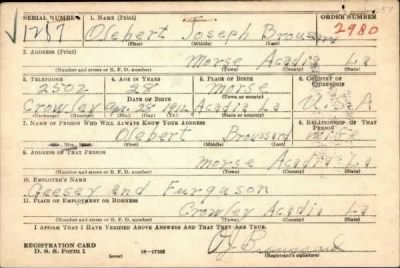 SERIAL NUMBER 1. NAME (Print) ORDER NUMBER
1287 Olebert Joseph Broussard 2980
(First) (Middle) (Last)
2. ADDRESS (Print)
Morse Acadia La
(Number and street or R. F. D. number) (Town) (County) (State)
3. TELEPHONE 4. AGE IN YEARS 5. PLACE OF BIRTH 6. COUNTRY OF CITIZENSHIP
2502 28 Morse
(Town or county)
DATE OF BIRTH
Crowley 1912 Acadia La U.S.A
(Exchange) (Number) (Mo.) (Day) (Yr.) (State or country)
7. NAME OF PERSON WHO WILL ALWAYS KNOW YOUR ADDRESS 8. RELATIONSHIP OF THAT PERSON
Olebert Broussard wife
(First) (Middle) (Last)
9. ADDRESS OF THAT PERSON
Morse Acadia La
(Number and street or R. F. D. number) (Town) (County) (State)
10. EMPLOYER'S NAME
Geesey and Furguson
11. PLACE OF EMPLOYMENT OR BUSINESS
Crowley Acadia La
(Number and street or R. F. D. number) (Town) (County) (State)
I AFFIRM THAT I HAVE VERIFIED ABOVE ANSWERS AND THAT THEY ARE TRUE.
REGISTRATION CARD
D. S. S. Form 1 (over) (Registrant's signature)